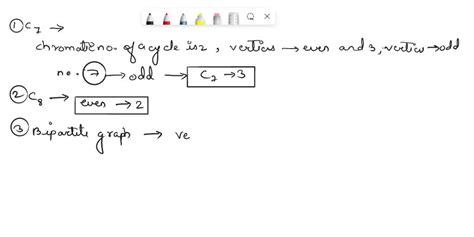 ① C₇ →
chromatic no. of a cycle is 2, vertices → even and 3, vertices → odd
no. ⑦ → odd → C₇ → 3
② C₈ → even → 2
③ Bipartite graph → ve